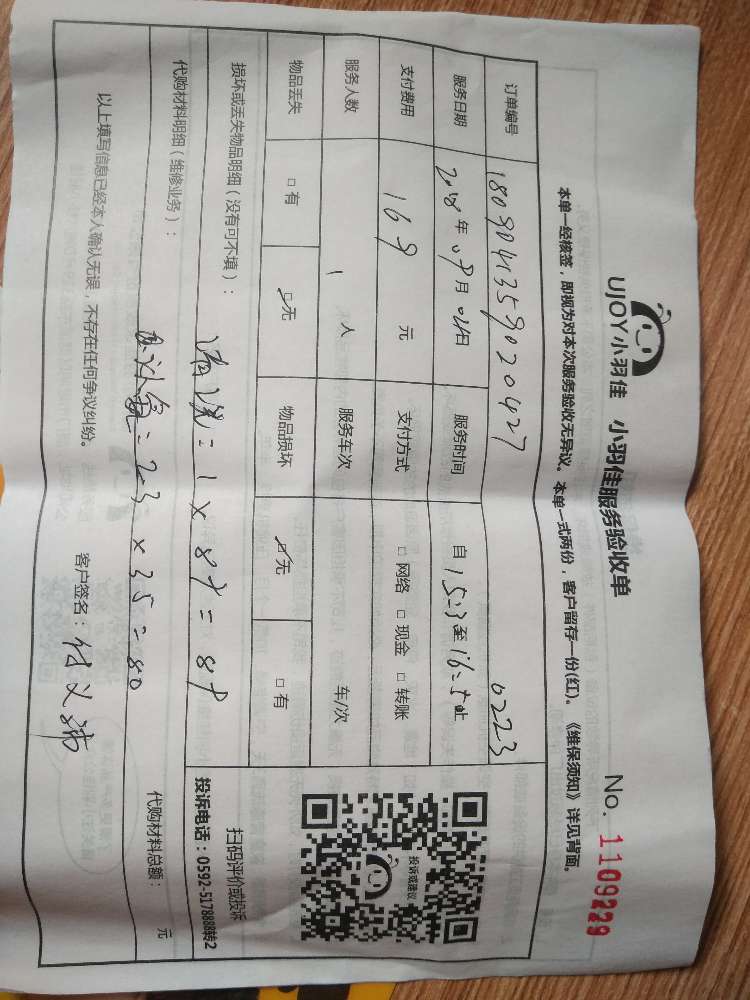 UJOY小羽佳 小羽佳服务验收单 No. 1109229
本单一经核签,即视为对本次服务验收无异议。本单一式两份,客户留存一份(红)。《维保须知》详见背面。
订单编号 1809041359020427 0223
服务日期 2018年09月04日 服务时间 自15:3至16:5止
支付费用 169元 支付方式 □网络 □现金 □转账
服务人数 1人 服务车次 车/次
物品丢失 □有 ☑无 物品损坏 ☑无 □有
损坏或丢失物品明细(没有可不填): 清洗=1×89=89
扫码评价或投诉
投诉电话:0592-5178888转2
投诉或建议
代购材料明细(维修业务): =23×35=80
代购材料总额: 元
以上填写信息已经本人确认无误,不存在任何争议纠纷。 客户签名: